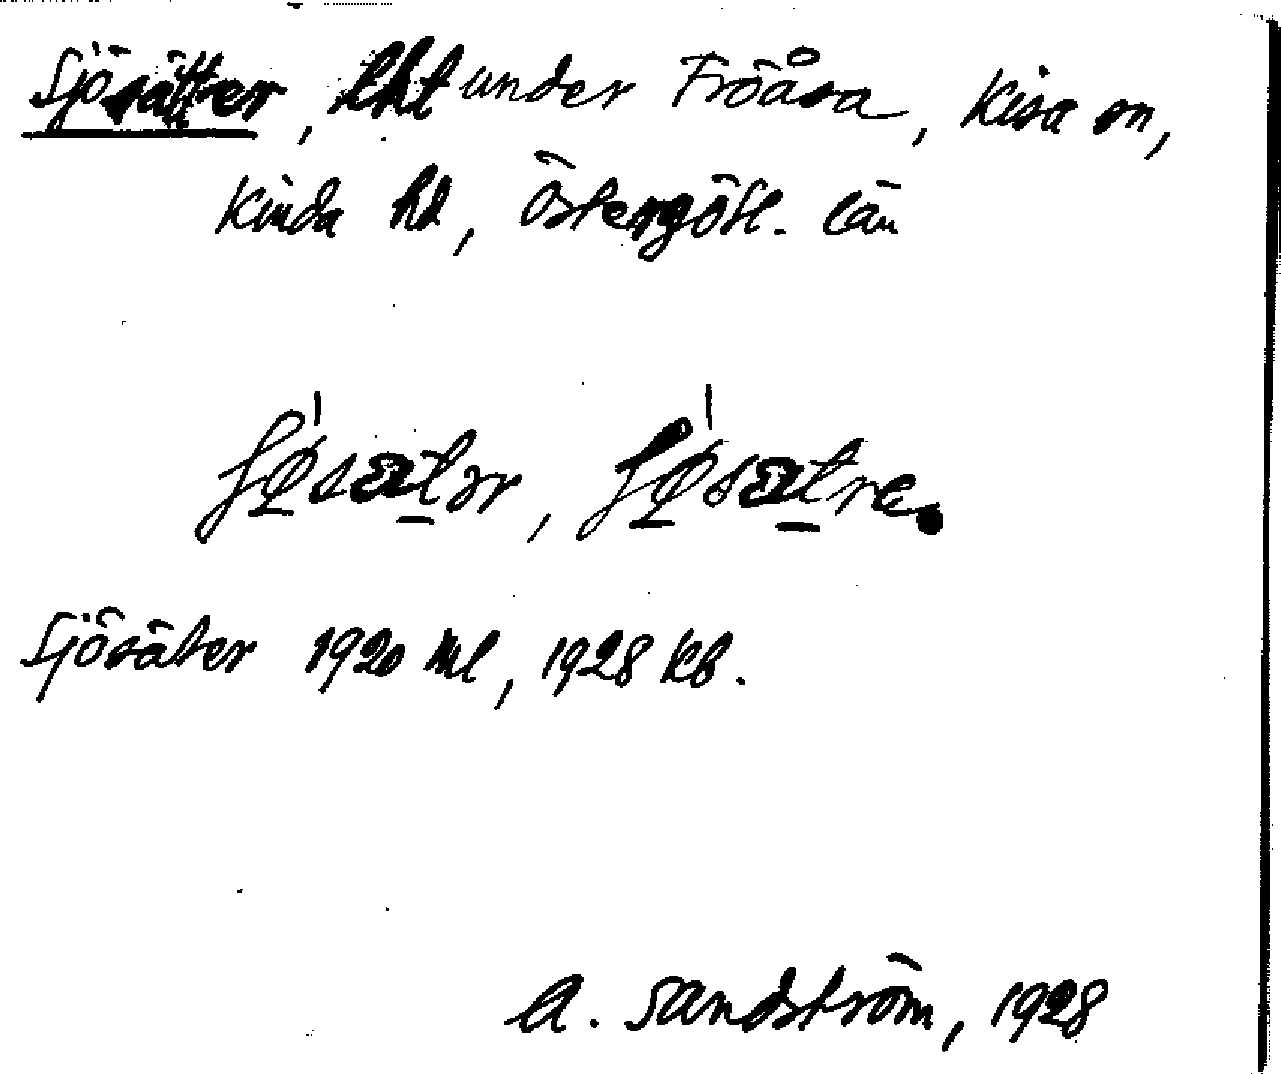 Sjösätter, lht under Fröåsa, Kisa sn,
Kinda hd, Östergötl. län
ʃø̱̀sæt̠ər, ʃø̱̀sæt̠re.
Sjösäter 1920 Ml, 1928 kb.
A. Sandström, 1928